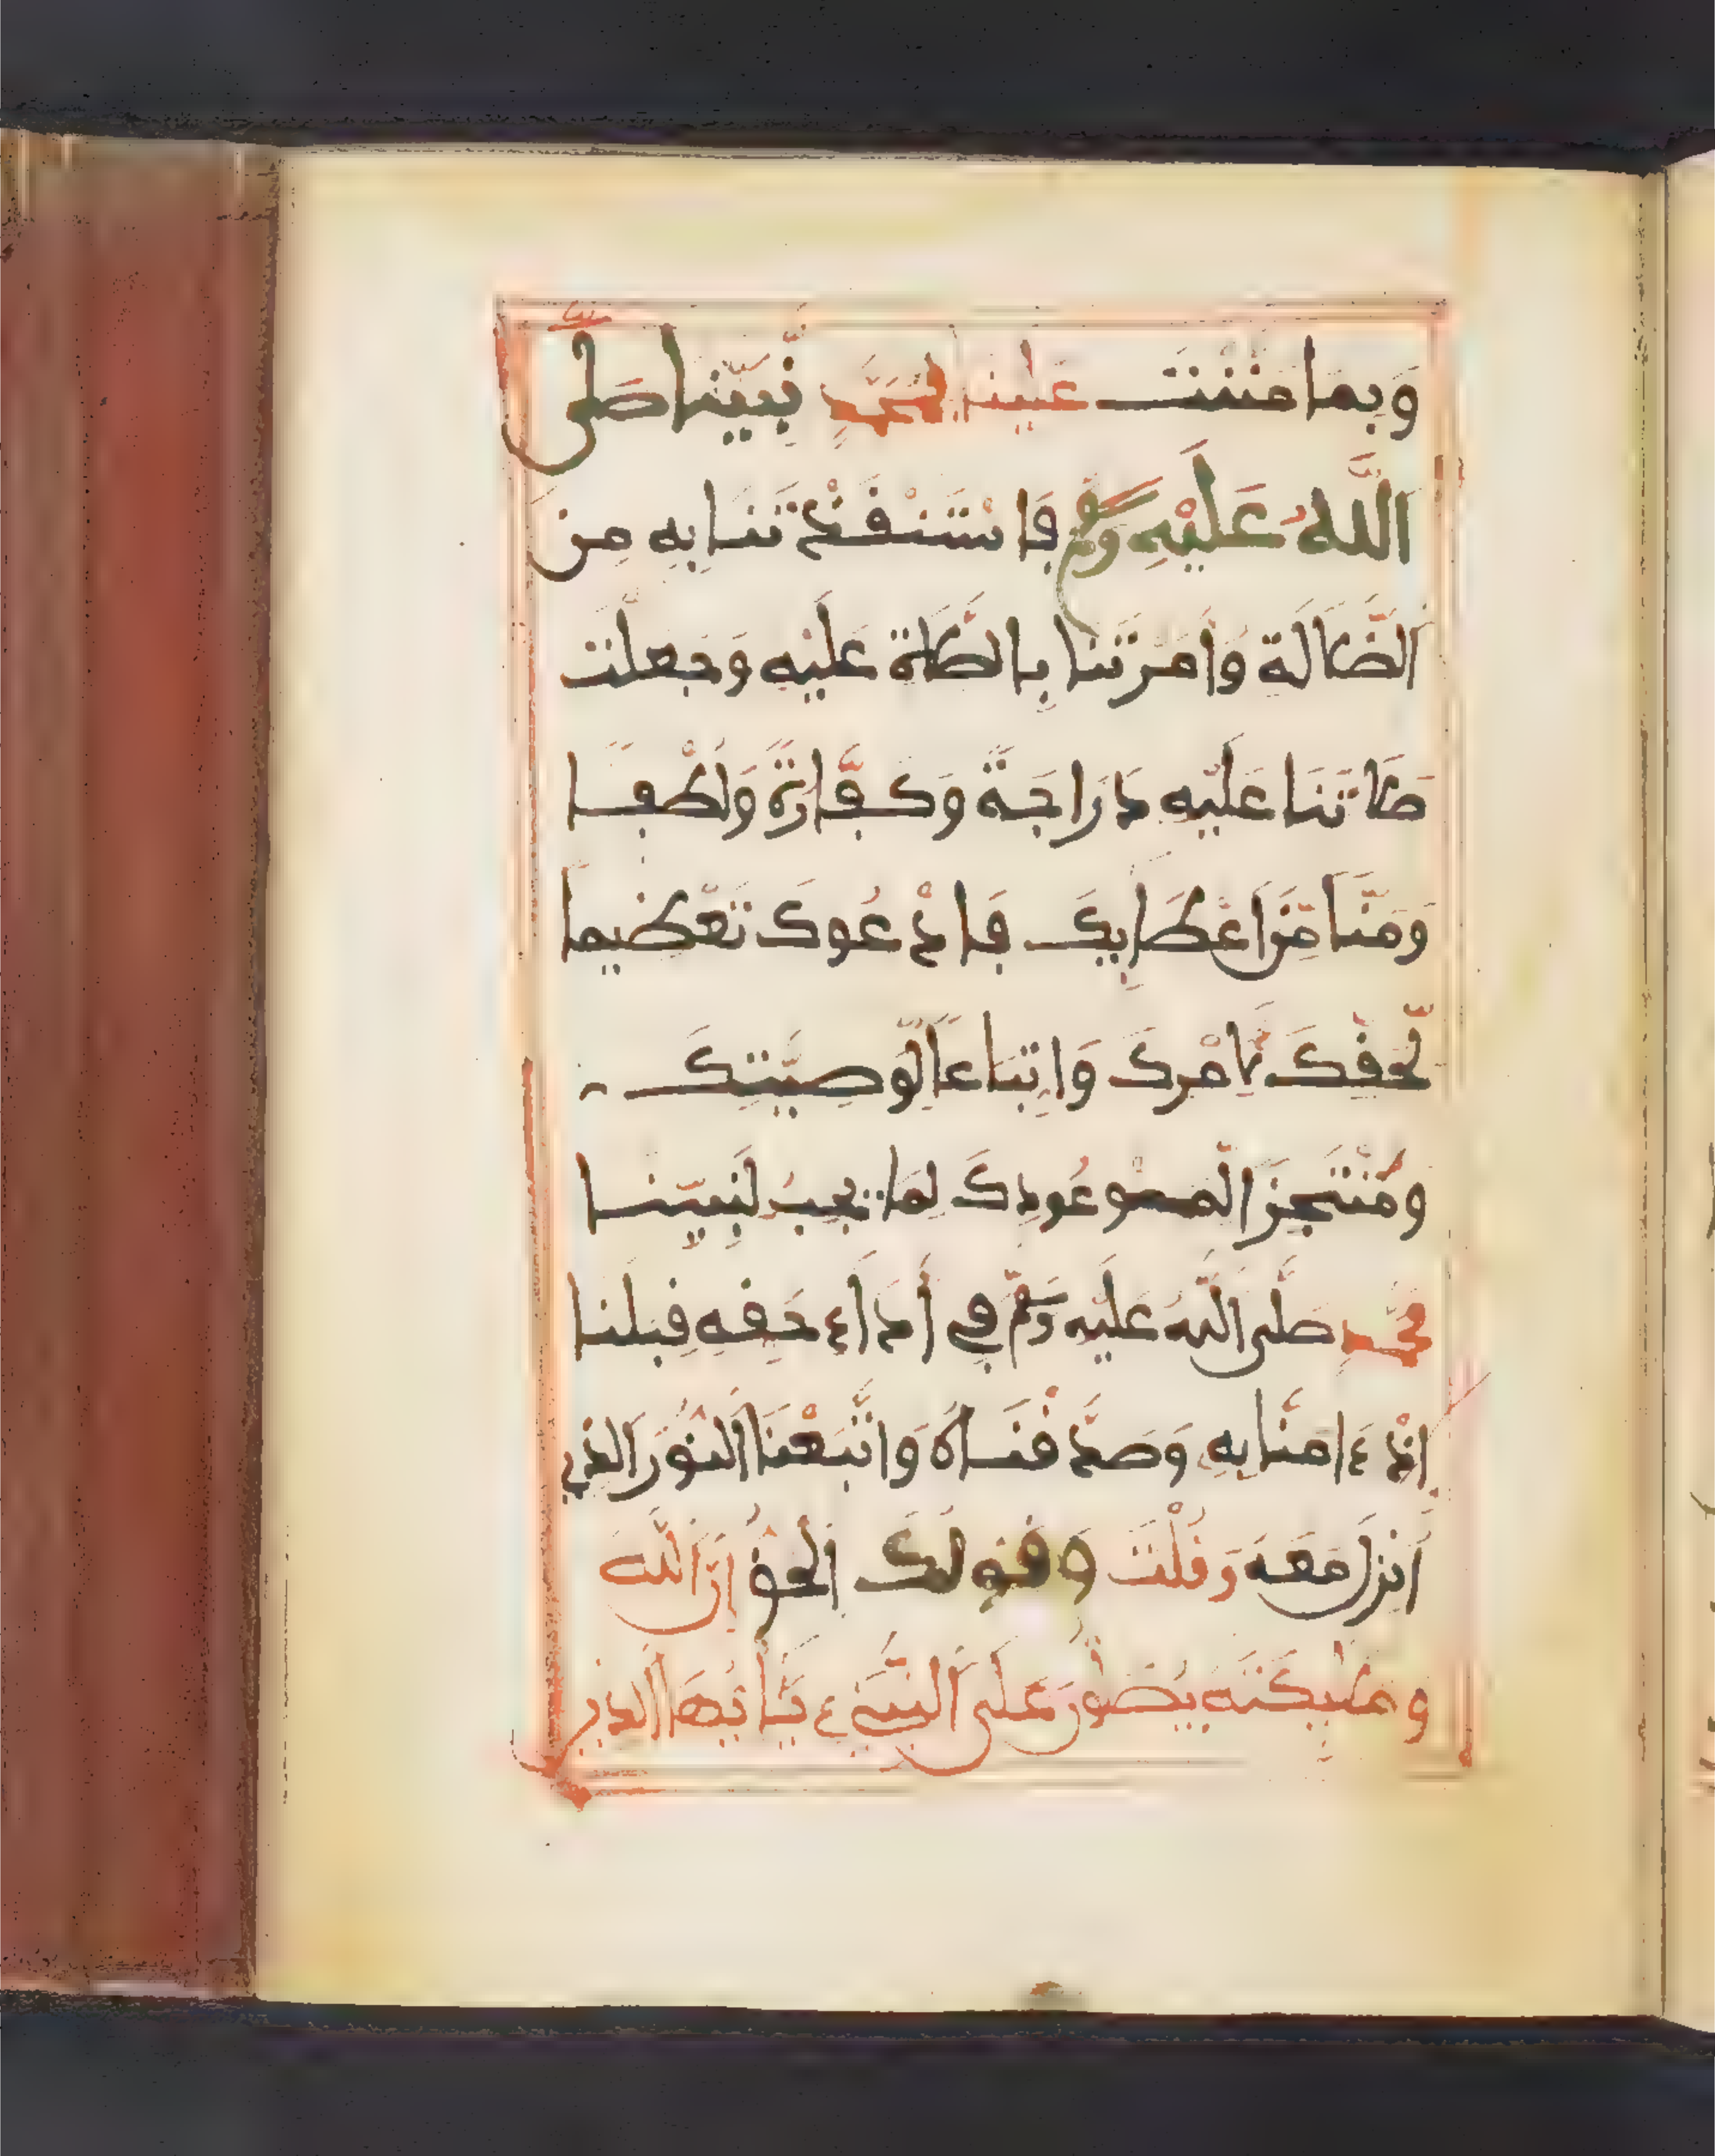 وَبِمَا مَنَنْتَ عَلَيْنَا بِمُحَمَّدٍ نَّبِيِّنَا صَلَّى
اَللَّهُ عَلَيْهِ وَسَلَّمَ فَاسْتَنْقَذْتَنَا بِهِ مِنَ
اَلضَّلَالَة وَأَمَرْتَنَا بِالصَّلَاة عَلَيْهِ وَجَعَلْتَ
صَلَاتَنَا عَلَيْهِ دَرَاجَةً وَكَفَّارَةً وَلُطْفًا
وَمَنًّا مِّنَ اعْطَايِكَ فَادْعُوكَ تَعْظِيمًا
لِّحَقِّكَ لِأَمْرِكَ وَاتِّبَاعًا لِّوَصِيَّتِكَ
وَمُنْتَجِزَ الْمَوْعُودِكَ لِمَا يَجِبُ لِنَبِيِّنَا
مُحَمَّدٍ صَلَّى اللَّهُ عَلَيْهِ وَسَلَّمَ فِي أَدَاءِ حَقِّهِ قِبَلَنَا
إِذْ ءَامَنَّا بِهِ وَصَدَّقْنَاهُ وَاتَّبَعْنَا اَلنُّورَ الَّذِي
اُنْزِلَ مَعَهُ وَقُلْتَ وَقَوْلُكَ اَلْحَقُّ إِنَّ اللَّهَ
وَمَلَٰئِكَتَهُ يُصَلُّونَ عَلَى اَلنَّبِيِّ يَٰأَيُّهَا اَلَّذِينَ